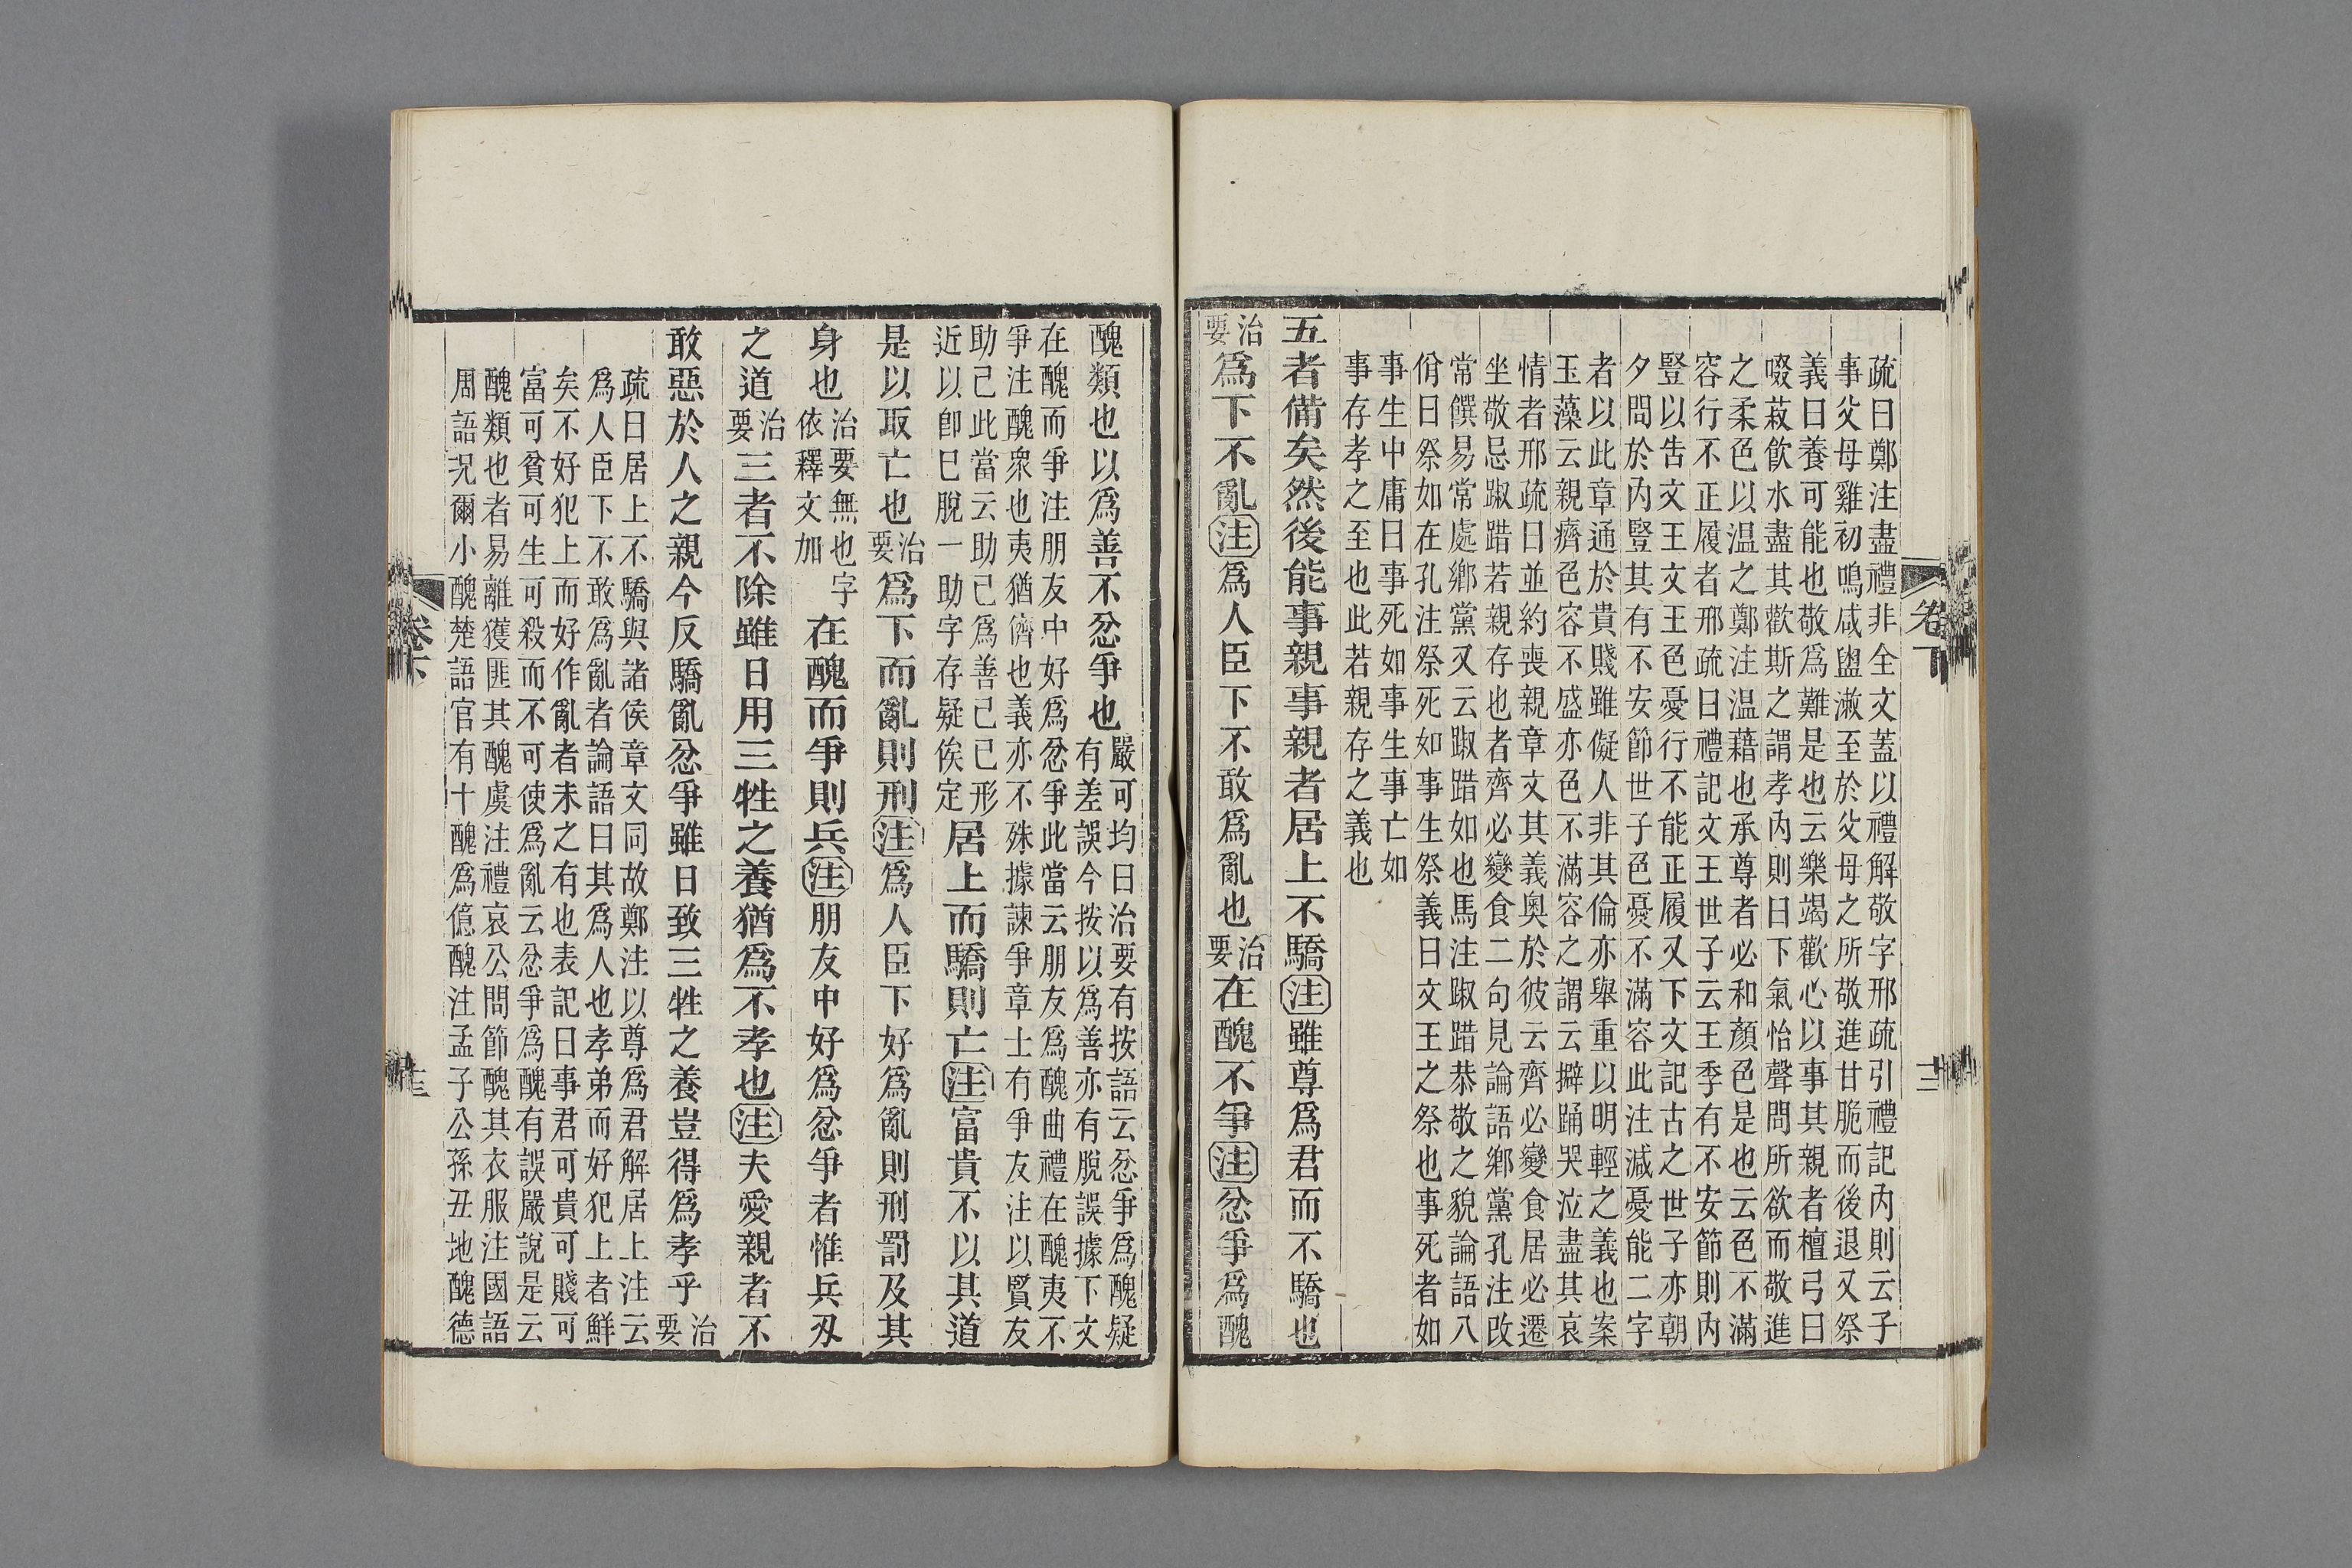 疏曰鄭注盡禮非全文葢以禮解敬字邢疏引禮記內則云子
事父母雞初鳴咸盥漱至於父母之所敬進甘脆而後退又祭
義曰養可能也敬爲難是也云樂竭歡心以事其親者檀弓曰
啜菽飲水盡其歡斯之謂孝內則曰下氣怡聲問所欲而敬進
之柔色以温之鄭注温藉也承尊者必和顏色是也云色不滿
容行不正履者邢疏曰禮記文王世子云王季有不安節則內
豎以告文王文王色憂行不能正履又下文記古之世子亦朝
夕問於內豎其有不安節世子色憂不滿容此注減憂能二字
者以此章通於貴賤雖儗人非其倫亦舉重以明輕之義也案
玉藻云親癠色容不盛亦色不滿容之謂云擗踊哭泣盡其哀
情者邢疏曰並約喪親章文其義奧於彼云齊必變食居必遷
坐敬忌踧踖若親存也者齊必變食二句見論語鄉黨孔注改
常饌易常處鄉黨又云踧踖如也馬注踧踖恭敬之貌論語八
佾曰祭如在孔注祭死如事生祭義曰文王之祭也事死者如
事生中庸曰事死如事生事亡如
事存孝之至也此若親存之義也
五者備矣然後能事親事親者居上不驕注雖尊爲君而不驕也
治要爲下不亂注爲人臣下不敢爲亂也治要在醜不爭注忿爭爲醜
卷下
十二
醜類也以爲善不忿爭也嚴可均曰治要有按語云忿爭爲醜疑
有差誤今按以爲善亦有脫誤據下文
在醜而爭注朋友中好爲忿爭此當云朋友爲醜曲禮在醜夷不
爭注醜衆也夷猶儕也義亦不殊據諫爭章士有爭友注以賢友
助己此當云助己爲善己已形
近以卽巳脫一助字存疑俟定居上而驕則亡注富貴不以其道
是以取亡也治要爲下而亂則刑注爲人臣下好爲亂則刑罰及其
身也治要無也字依釋文加在醜而爭則兵注朋友中好爲忿爭者惟兵刃
之道治要三者不除雖日用三牲之養猶爲不孝也注夫愛親者不
敢惡於人之親今反驕亂忿爭雖日致三牲之養豈得爲孝乎治要
疏曰居上不驕與諸侯章文同故鄭注以尊爲君解居上注云
爲人臣下不敢爲亂者論語曰其爲人也孝弟而好犯上者鮮
矣不好犯上而好作亂者未之有也表記曰事君可貴可賤可
富可貧可生可殺而不可使爲亂云忿爭爲醜有誤嚴說是云
醜類也者易離獲匪其醜虞注禮哀公問節醜其衣服注國語
周語況爾小醜楚語官有十醜爲億醜注孟子公孫丑地醜德
卷下